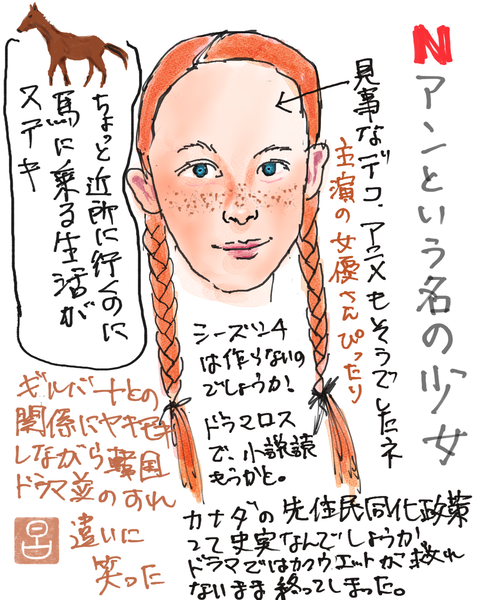 N
アンという名の少女
見事なデコ、アニメもそうでしたネ
主演の女優さんぴったり
ちょっと近所に行くのに
馬に乗る生活が
ステキ
シーズン4
は作らないの
でしょうか!
ドラマロス
で、小説読
もうかと。
ギルバートとの
関係にヤキモキ
しながら韓国
ドラマ並のすれ
違いに
笑った
カナダの先住民同化政策
って史実なんでしょうか
ドラマではカクウェットが救われ
ないまま終ってしまった。